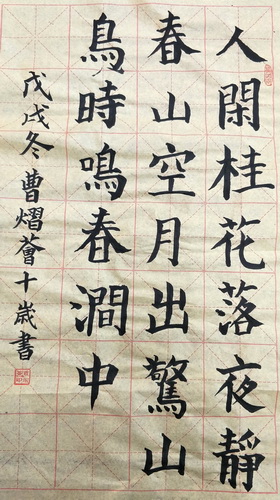 人閑桂花落夜靜
春山空月出驚山
鳥時鳴春澗中
戊戌冬曹熠薈十歲書